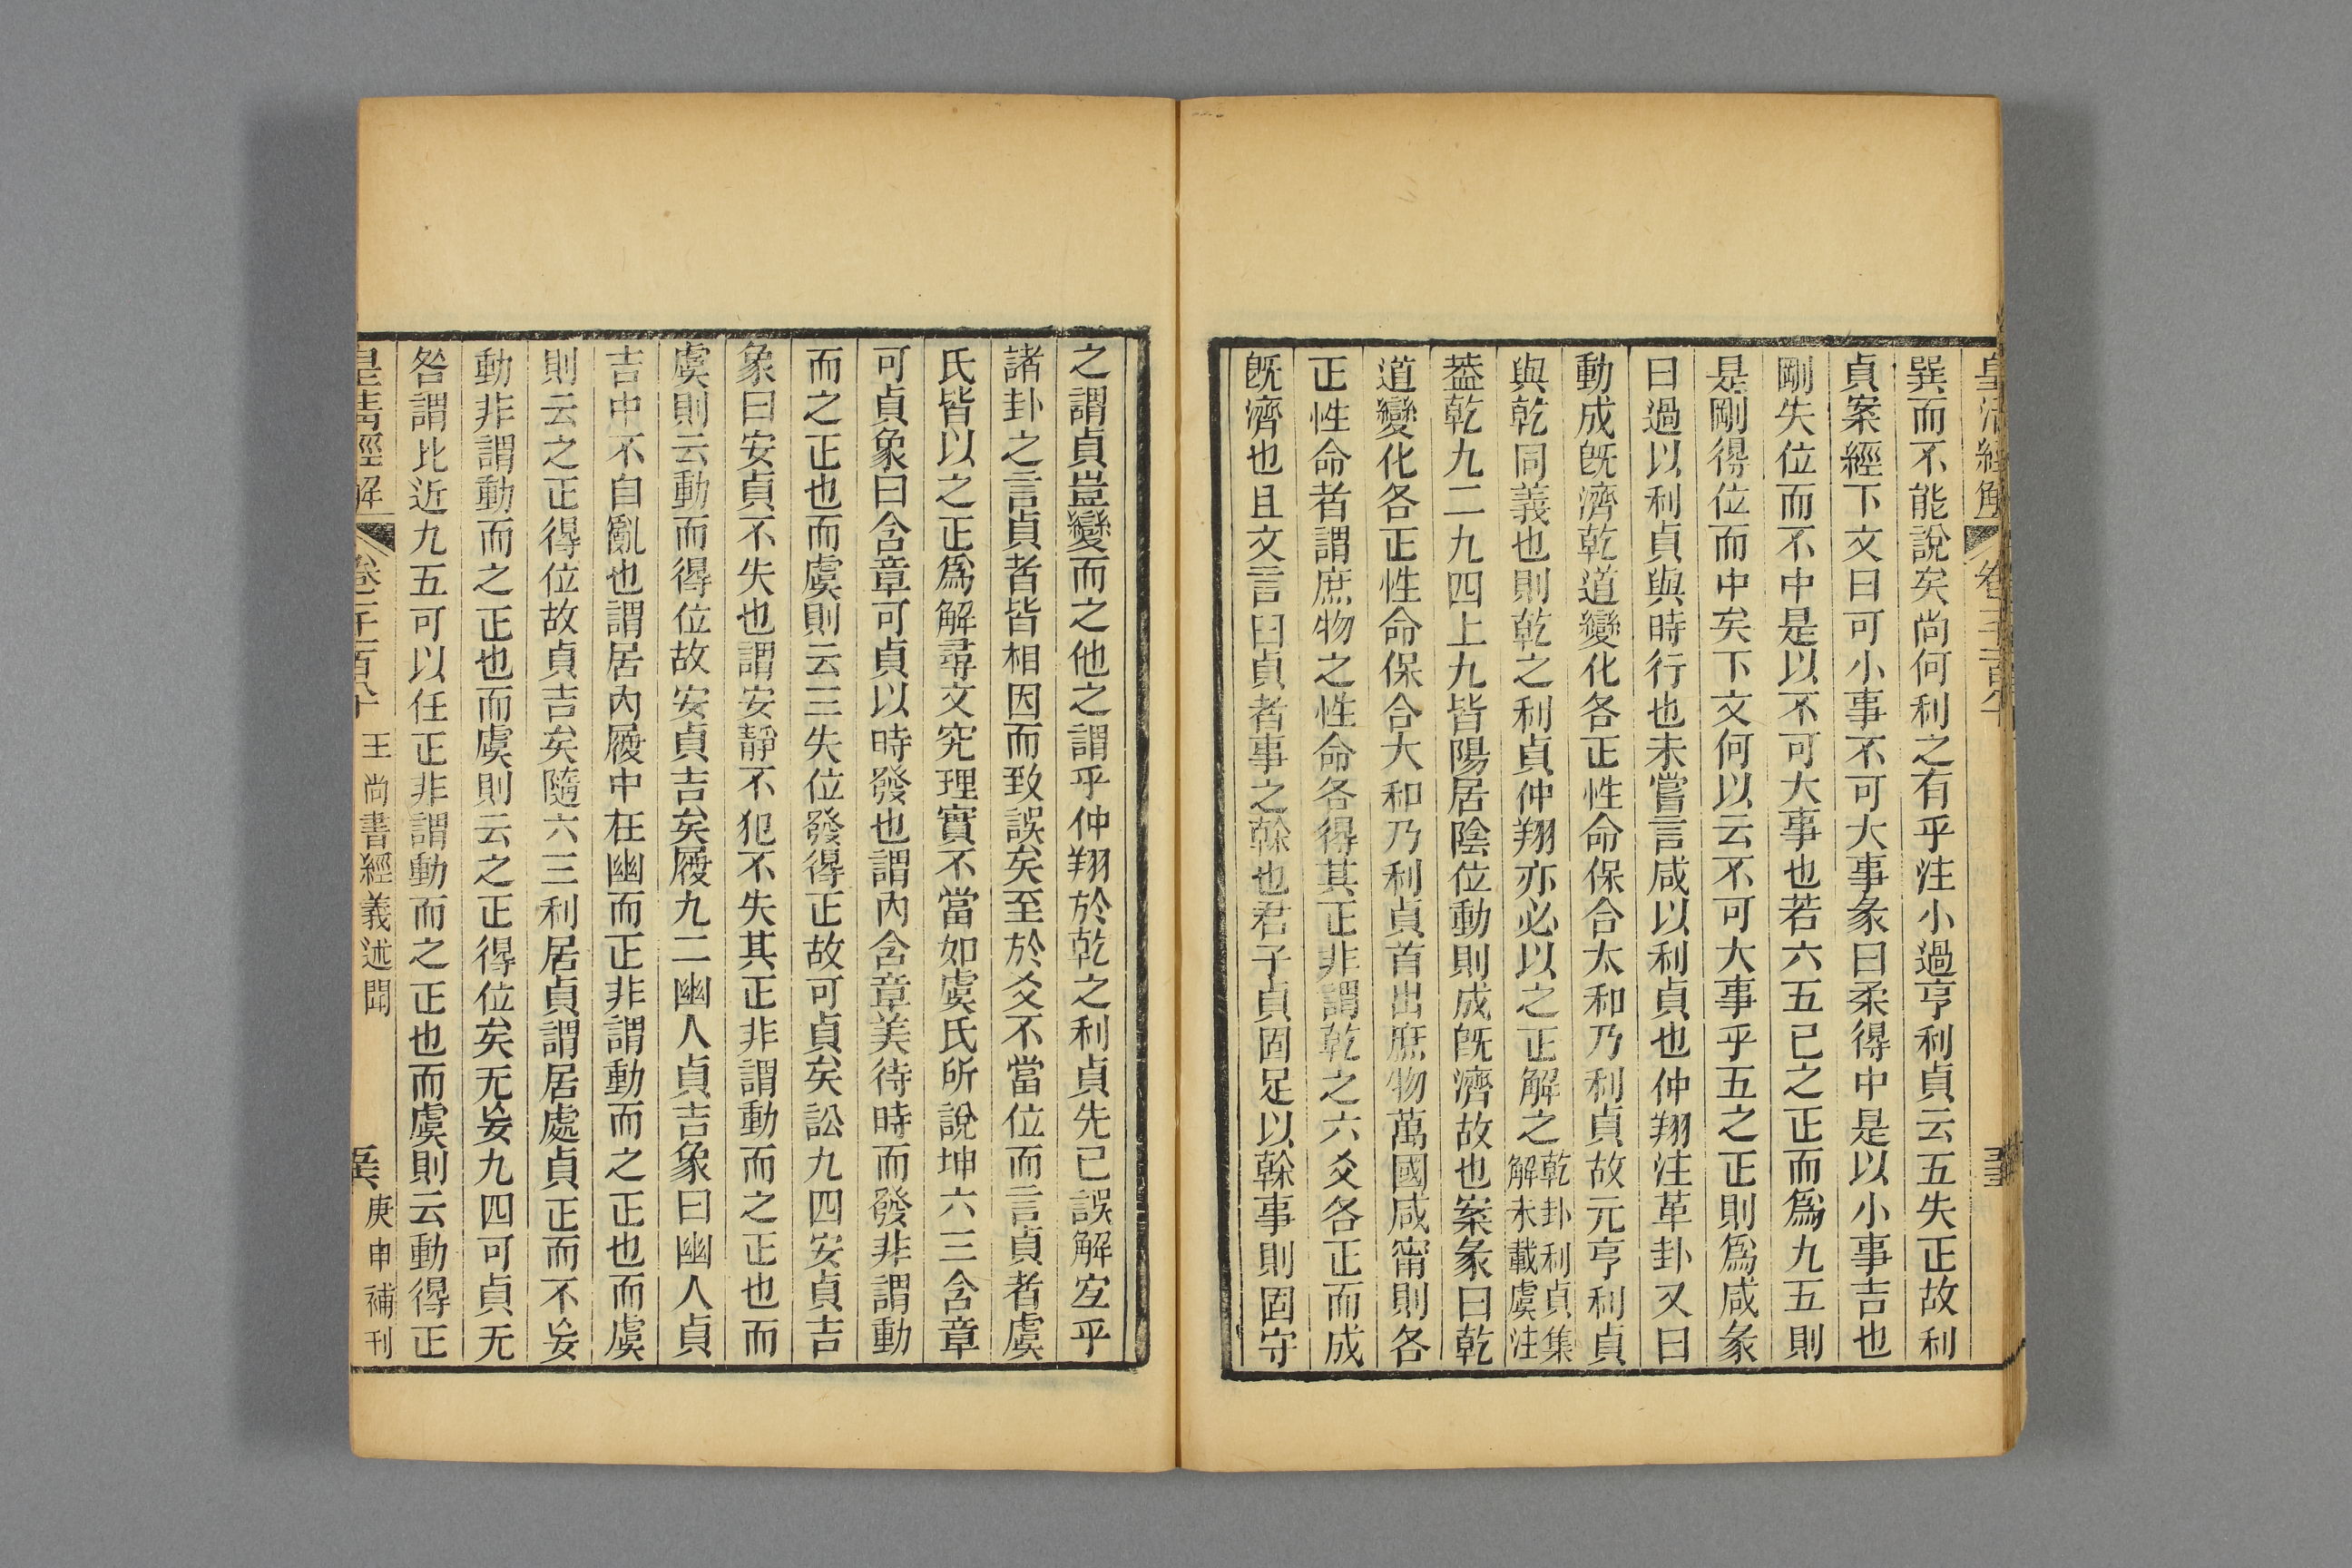 皇清經解
卷千一百八十
巽而不能說矣尚何利之有乎注小過亨利貞云五失正故利
貞案經下文曰可小事不可大事彖曰柔得中是以小事吉也
剛失位而不中是以不可大事也若六五已之正而爲九五則
是剛得位而中矣下文何以云不可大事乎五之正則爲咸彖
曰過以利貞與時行也未嘗言咸以利貞也仲翔注革卦又曰
動成旣濟乾道變化各正性命保合太和乃利貞故元亨利貞
與乾同義也則乾之利貞仲翔亦必以之正解之乾卦利貞集解未載虞注
葢乾九二九四上九皆陽居陰位動則成旣濟故也案彖曰乾
道變化各正性命保合大和乃利貞首出庶物萬國咸甯則各
正性命者謂庶物之性命各得其正非謂乾之六爻各正而成
旣濟也且文言曰貞者事之榦也君子貞固足以榦事則固守
之謂貞豈變而之他之謂乎仲翔於乾之利貞先已誤解宐乎
諸卦之言貞者皆相因而致誤矣至於爻不當位而言貞者虞
氏皆以之正爲解尋文究理實不當如虞氏所說坤六三含章
可貞象曰含章可貞以時發也謂內含章美待時而發非謂動
而之正也而虞則云三失位發得正故可貞矣訟九四安貞吉
象曰安貞不失也謂安靜不犯不失其正非謂動而之正也而
虞則云動而得位故安貞吉矣履九二幽人貞吉象曰幽人貞
吉中不自亂也謂居內履中在幽而正非謂動而之正也而虞
則云之正得位故貞吉矣隨六三利居貞謂居處貞正而不妄
動非謂動而之正也而虞則云之正得位矣无妄九四可貞无
咎謂比近九五可以任正非謂動而之正也而虞則云動得正
皇清經解
卷千一百八十
王尚書經義述聞
庚申補刊